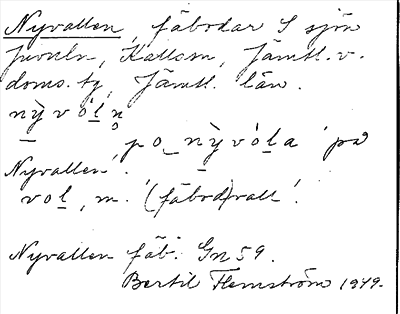 Nyvallen, fäbodar S sjön
Juvuln, Kallsm, Jämtl. v.
doms. tg, Jämtl. län.
nỳvóln̥
po_nỳvóla 'på
Nyvallen'.
vol, m. '(fäbod)vall'.
Nyvallen fäb. Gn 59.
Bertil Flemström 1949.